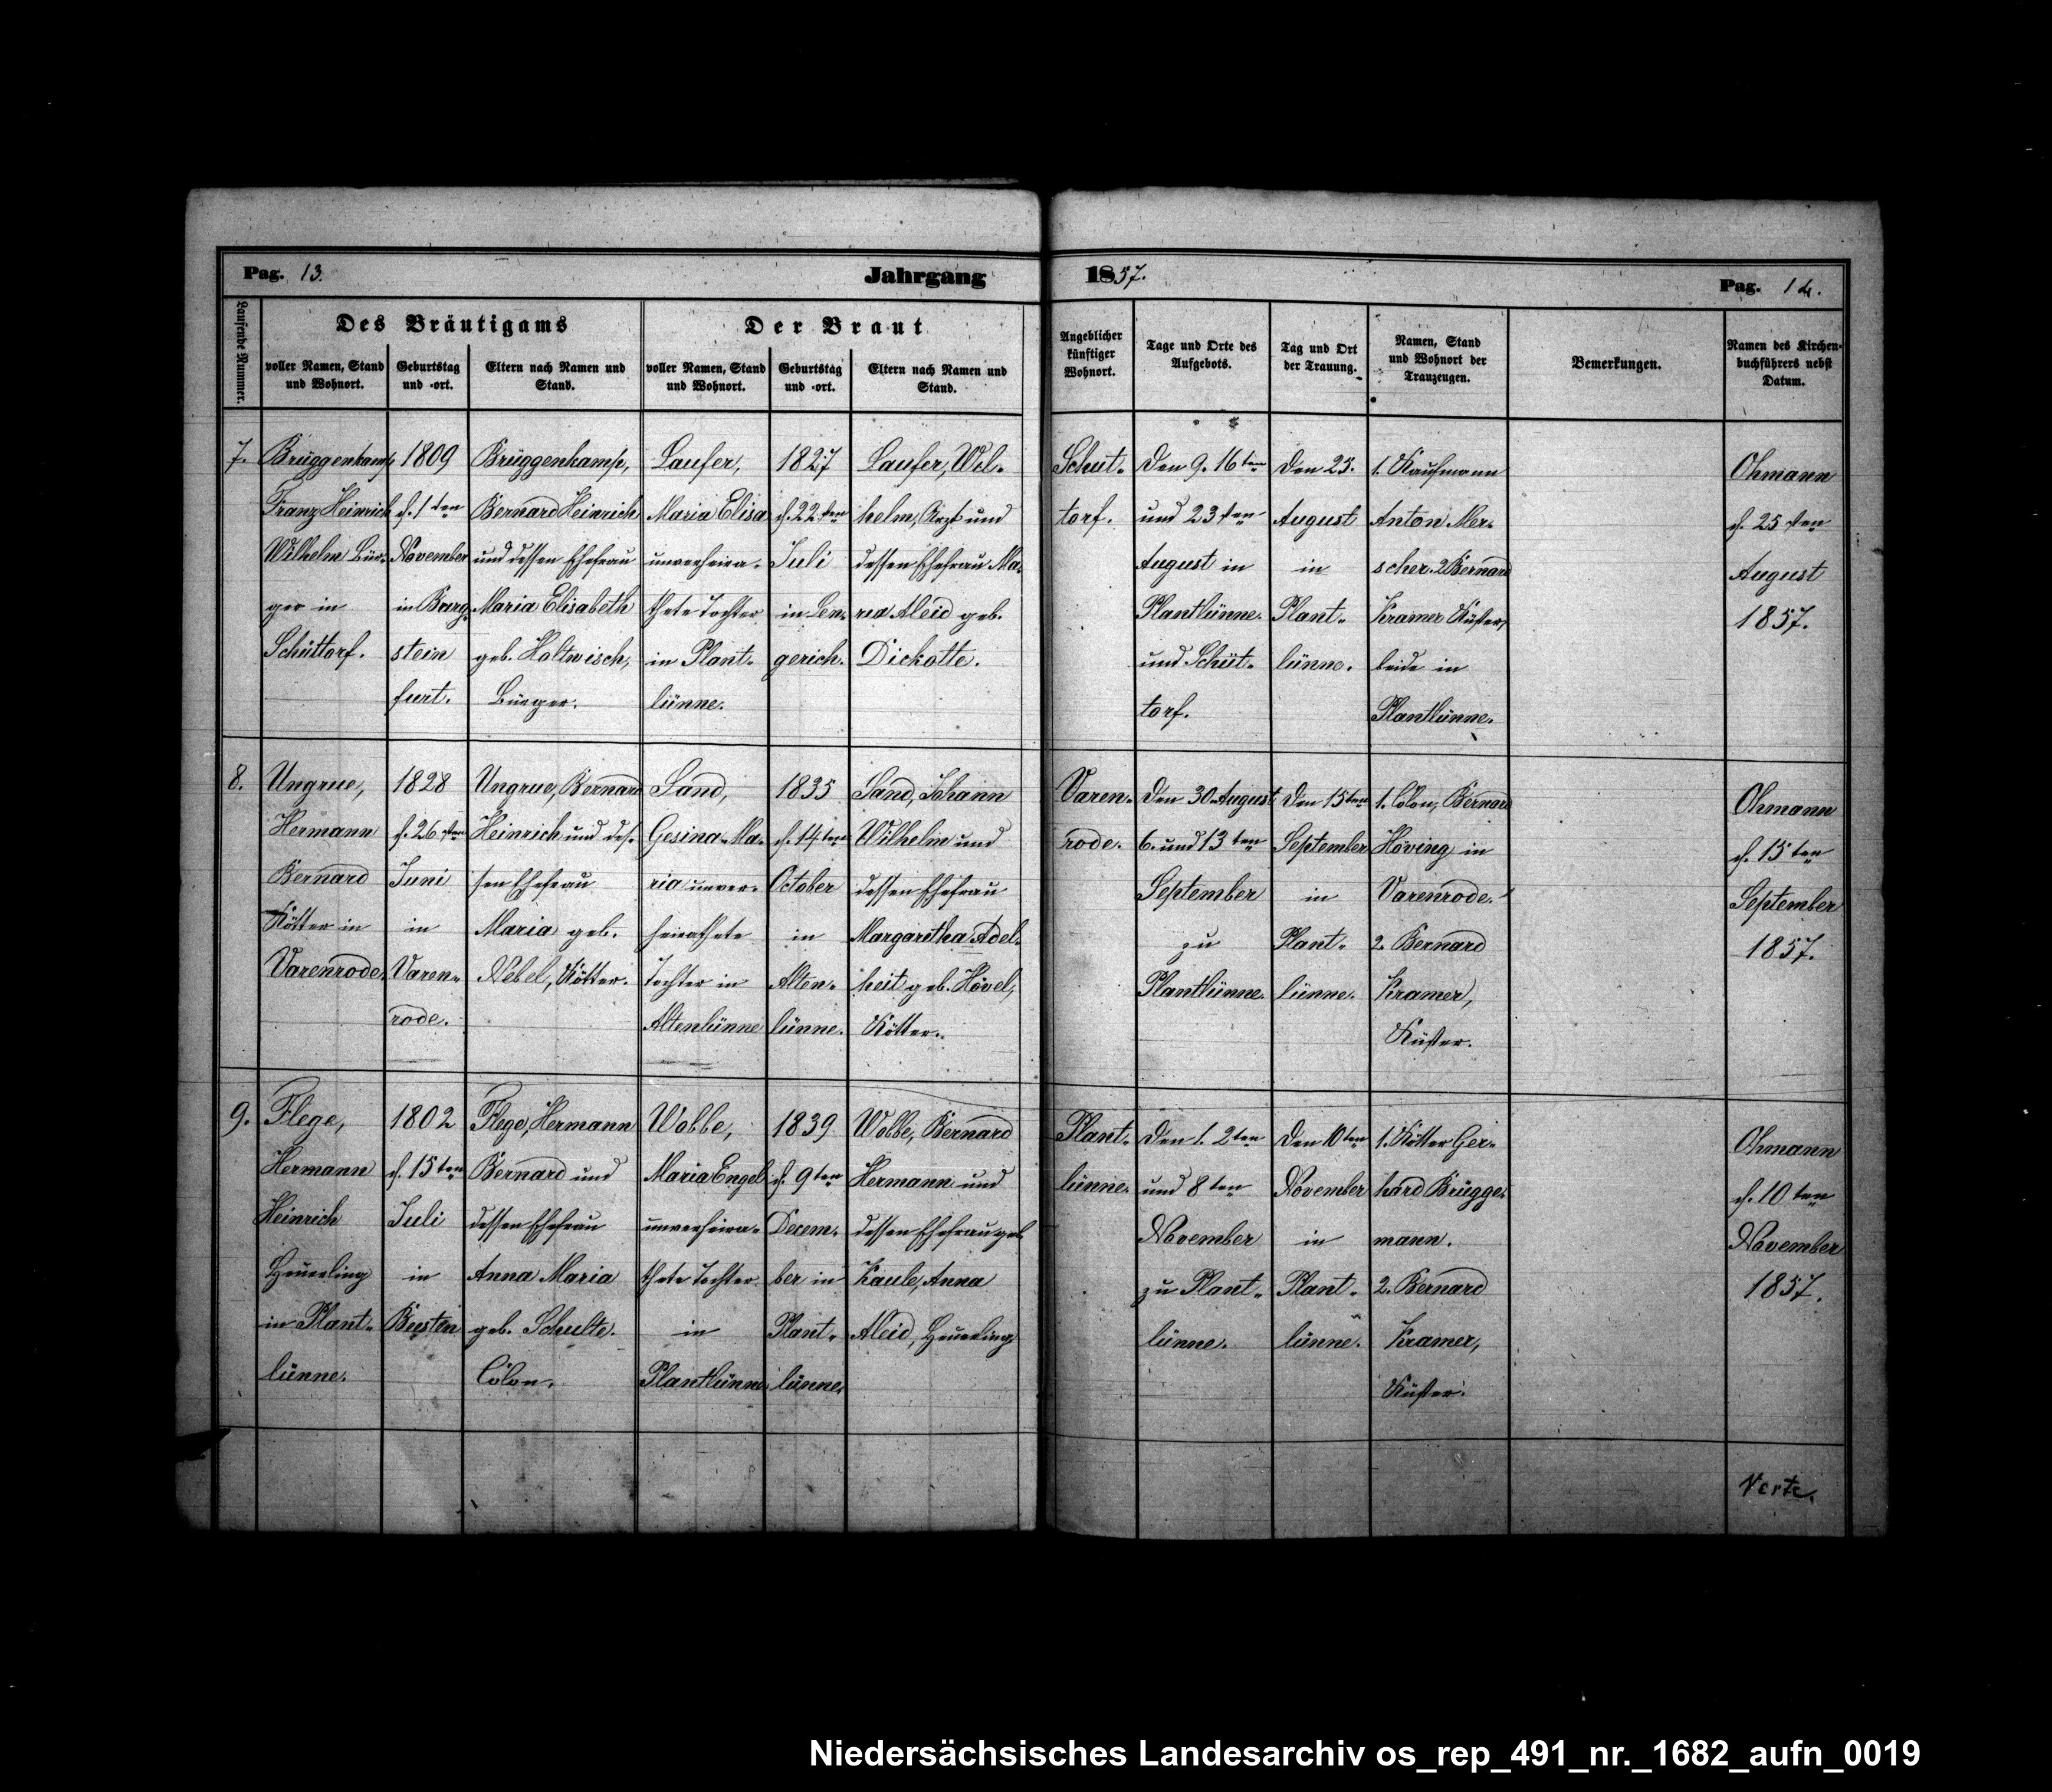 Pag. 13. Jahrgang 1857. Pag. 14.
Laufende Nummer.
Des Bräutigams
voller Namen, Stand
und Wohnort.
Geburtstag
und -ort.
Eltern nach Namen und
Stand.
Der Braut
voller Namen, Stand
und Wohnort.
Geburtstag
und -ort.
Eltern nach Namen und
Stand.
Angeblicher
künftiger
Wohnort.
Tage und Orte des
Aufgebots.
Tag und Ort
der Trauung.
Namen, Stand
und Wohnort der
Trauzeugen.
Bemerkungen.
Namen des Kirchen-
buchführers nebst
Datum.
7.
Brüggenkamp
Franz Heinrich
Wilhelm Bür-
ger in
Schüttorf.
1809
d. 1ten
November
in Burg-
stein
furt.
Brüggenkamp,
Bernard Heinrich
und dessen Ehefrau
Maria Elisabeth
geb. Holtwisch,
Bürger.
Laufer,
Maria Elisa
unverheira-
thete Tochter
in Plant-
lünne.
1827
d. 22ten
Juli
in Len-
gerich.
Laufer, Wil-
helm, Arzt und
dessen Ehefrau Ma-
ria Aleid geb.
Dickotte.
Schut-
torf.
Den 9. 16ten
und 23ten
August in
Plantlünne
und Schüt-
torf.
Den 25.
August
in
Plant-
lünne.
1. Kaufmann
Anton Mer-
scher. 2 Bernard
Kramer Küster,
beide in
Plantlünne.
Ohmann
d. 25ten
August
1857.
8.
Ungrue,
Hermann
Bernard
Kötter in
Varenrode.
1828
d. 26ten
Juni
in
Varen-
rode.
Ungrue, Bernard
Heinrich und des-
sen Ehefrau
Maria geb.
Nebel, Kötter.
Sand,
Gesina Ma-
ria unver-
heirathete
Tochter in
Altenlünne
1835
d. 14ten
October
in
Alten-
lünne.
Sand, Johann
Wilhelm und
dessen Ehefrau
Margaretha Adel-
heit geb. Hövel,
Kötter.
Varen-
rode.
Den 30. August
6. und 13ten
September
zu
Plantlünne.
Den 15ten
September
in
Plant-
lünne.
1. Colon, Bernard
Höving in
Varenrode.
2. Bernard
Kramer,
Küster.
Ohmann
d. 15ten
September
1857.
9.
Flege,
Hermann
Heinrich
Heuerling
in Plant-
lünne.
1802
d. 15ten
Juli
in
Beesten
Flege, Hermann
Bernard und
dessen Ehefrau
Anna Maria
geb. Schulte.
Colon.
Wobbe,
Maria Engel
unverheira-
thete Tochter
in
Plantlünne
1839
d. 9ten
Decem-
ber in
Plant-
lünne.
Wobbe, Bernard
Hermann und
dessen Ehefrau geb
Kaule, Anna
Aleid, Heuerling
Plant-
lünne.
Den 1. 2ten
und 8ten
November
zu Plant-
lünne.
Den 10ten
November
in
Plant-
lünne.
1. Kötter Ger-
hard Brügge-
mann.
2. Bernard
Kramer,
Küster.
Ohmann
d. 10ten
November
1857.
Verte.
Niedersächsisches Landesarchiv os_rep_491_nr._1682_aufn_0019